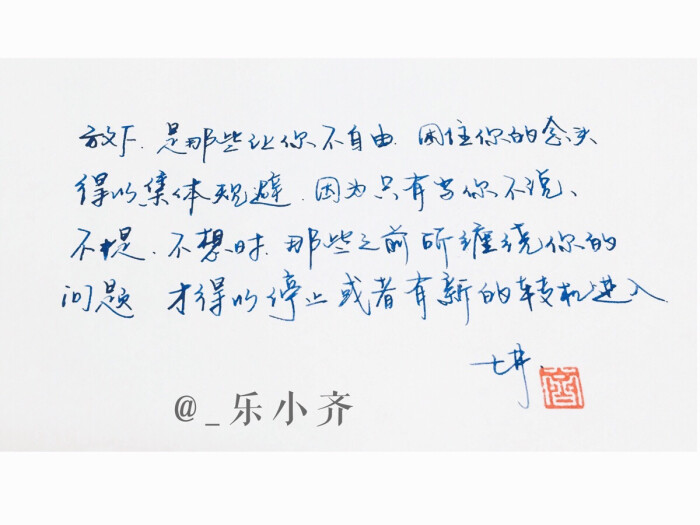 放下、是那些让你不自由、困住你的念头
得以集体规避、因为只有当你不说、
不提、不想时、那些之前所缠绕你的
问题 才得以停止或者有新的转机进入
七井
@_乐小齐